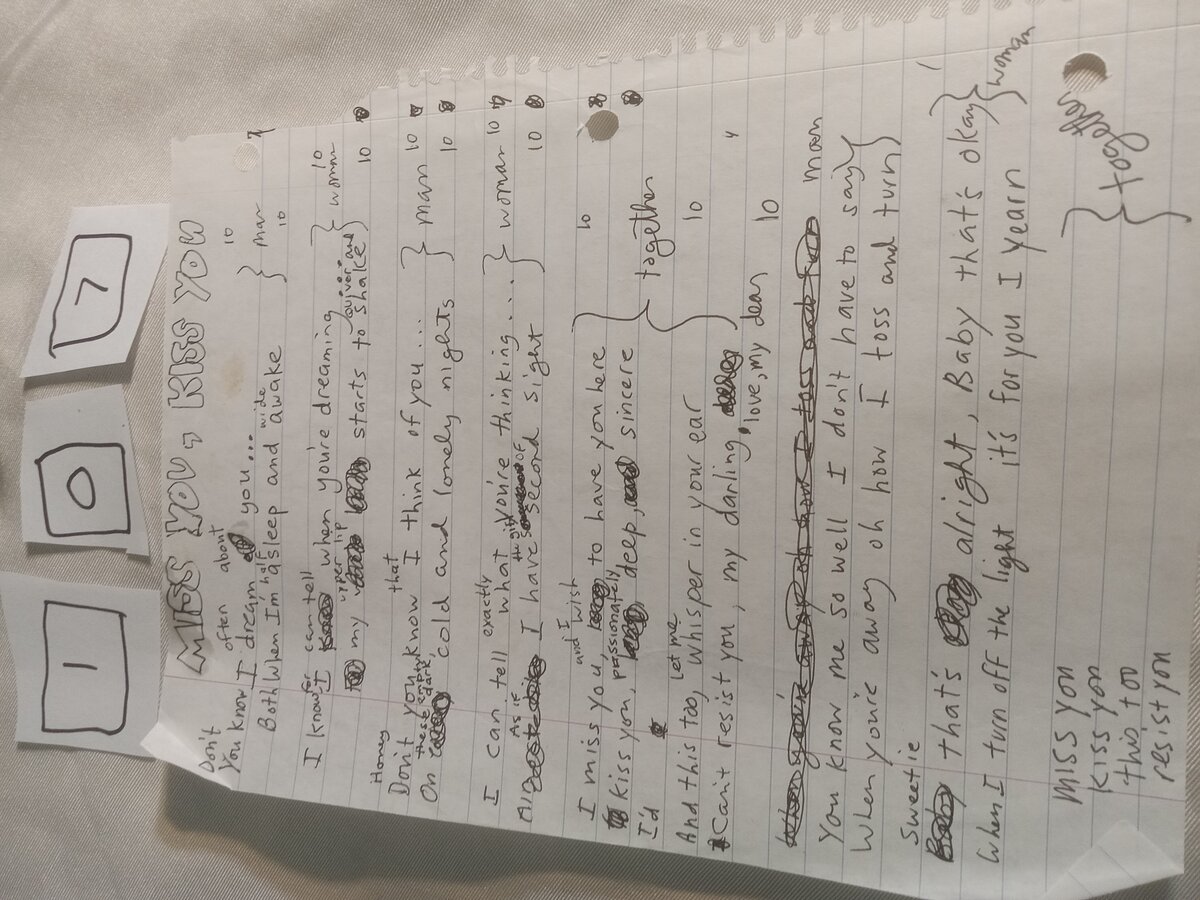 1 0 7
MISS YOU, KISS YOU
Don't often about
You know I dream you... 10
half wide } man
Both when I'm asleep and awake 10
for can tell
I know I when you're dreaming.... 10
upper lip quiver and } woman
my starts to shake 10
Honey that
Don't you know I think of you... 10
these empty } man
On dark, cold and lonely nights 10
exactly
I can tell what you're thinking... 10
As if the gift of } woman
I have second sight 10
and I wish
I miss you, to have you here 10
passionately
I'd kiss you, deep, sincere
} together
let me
And this too, whisper in your ear 10
Can't resist you, my darling, love, my dear 10
You know me so well I don't have to say
} man
When you're away oh how I toss and turn
Sweetie
that's alright, Baby that's okay
} woman
When I turn off the light it's for you I yearn
Miss you
kiss you
this too
resist you
} together